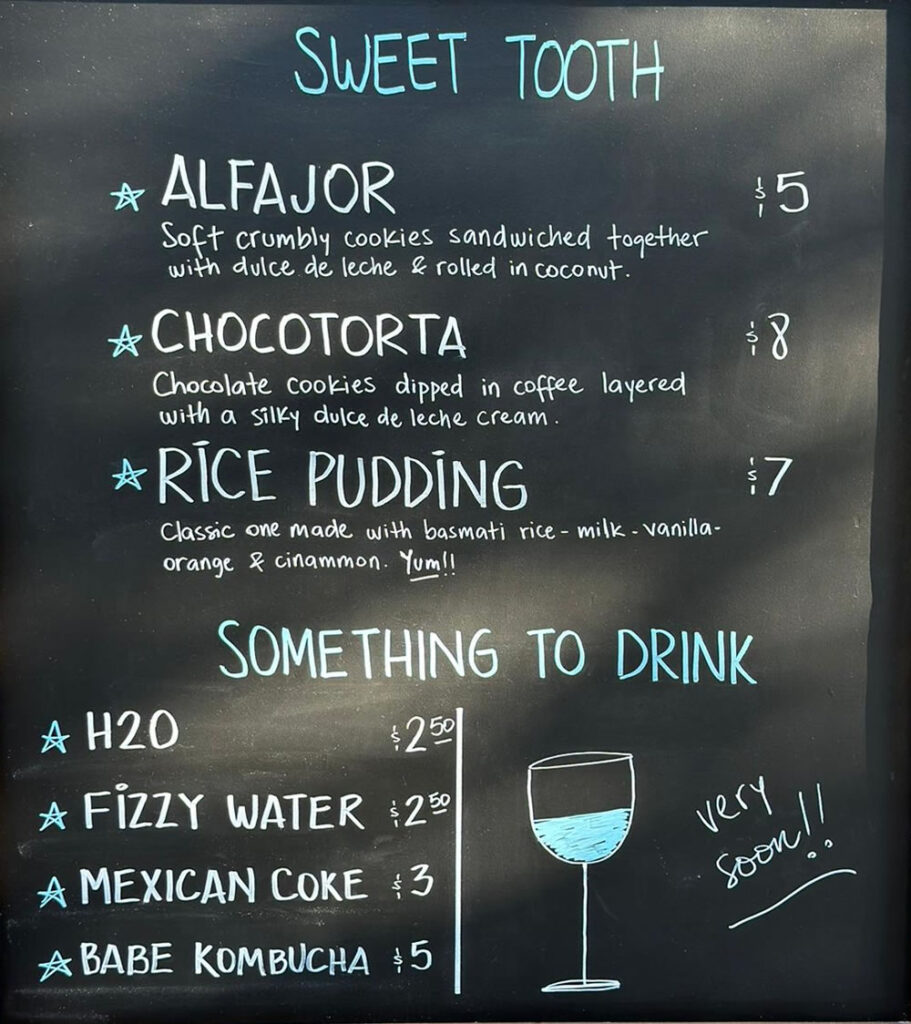 SWEET TOOTH
ALFAJOR $5
Soft crumbly cookies sandwiched together
with dulce de leche & rolled in coconut.
CHOCOTORTA $8
Chocolate cookies dipped in coffee layered
with a silky dulce de leche cream.
RICE PUDDING $7
Classic one made with basmati rice - milk - vanilla -
orange & cinammon. Yum!!
SOMETHING TO DRINK
H2O $2.50
FIZZY WATER $2.50
MEXICAN COKE $3
BABE KOMBUCHA $5
very
soon!!